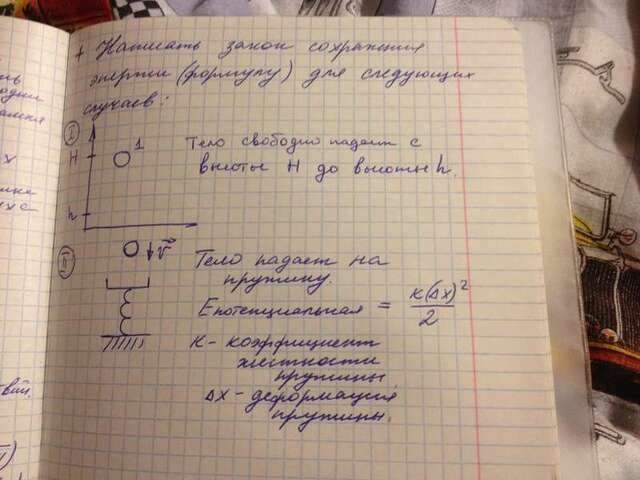 + Написать закон сохранения
энергии (формулу) для следующих
случаев:
I
1
H
h
Тело свободно падает с
высоты H до высоты h.
II
v
Тело падает на
пружину
Eпотенциальная = к(Δx)²/2
к - коэффициент
жесткости
пружины
Δx - деформация
пружины.